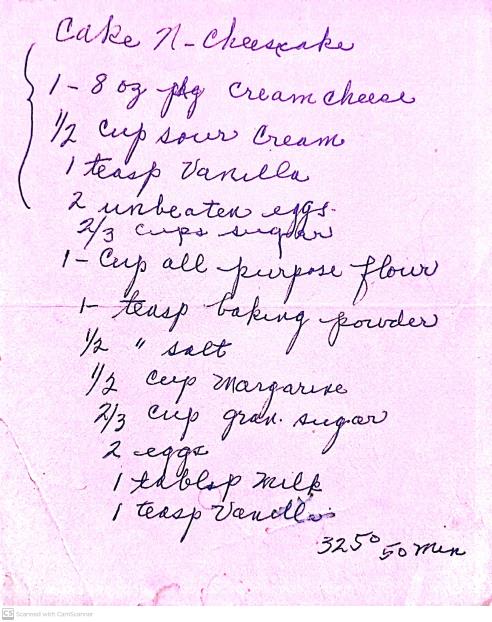 Cake N-Cheesecake
1 - 8 oz pkg Cream cheese
1/2 cup sour Cream
1 teasp Vanilla
2 unbeaten eggs.
2/3 cups sugar
1 - Cup all purpose flour
1 - teasp baking powder
1/2 " salt
1/2 cup Margarine
2/3 cup gran. sugar
2 eggs
1 tablsp Milk
1 teasp Vanilla
325° 50 Min
CS Scanned with CamScanner